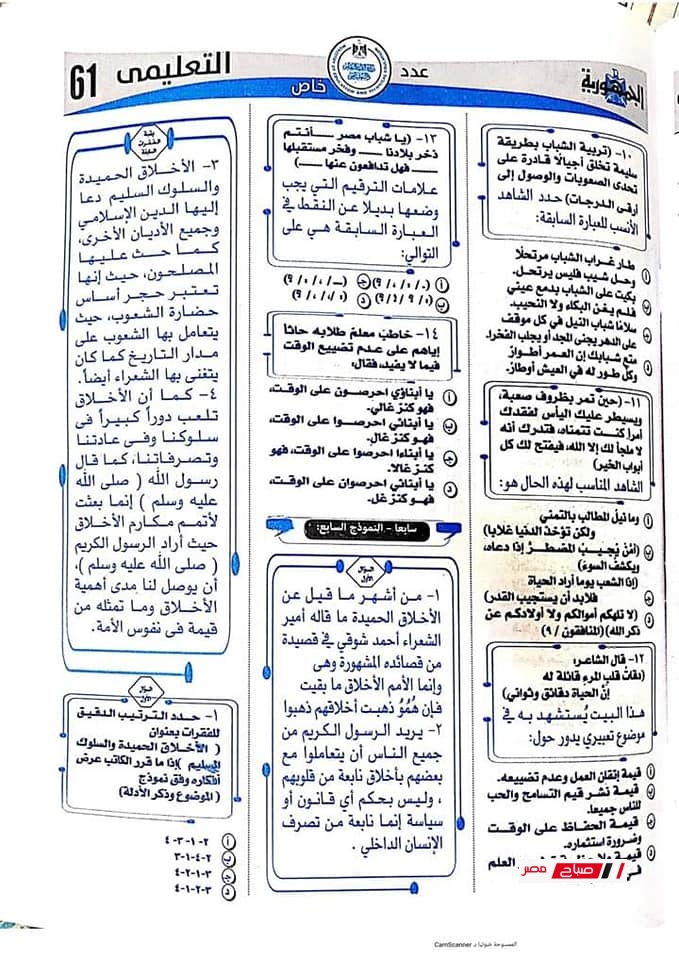 الجمهورية
عدد
خاص
التعليمى
61
١٠- (تربية الشباب بطريقة
سليمة تخلق أجيالًا قادرة على
تحدى الصعوبات والوصول إلى
أرقى الدرجات) حدد الشاهد
الأنسب للعبارة السابقة:
أ طار غراب الشباب مرتحلًا
وحل شيب فليس يرتحل.
ب بكيت على الشباب بدمع عيني
فلم يغن البكاء ولا النحيب.
ج سلامًا شباب النيل في كل موقف
على الدهر يجنى المجد أو يجلب الفخرا.
د متع شبابك إن العمر أطوار
وكل طور له في العيش أوطار.
١١- (حين تمر بظروف صعبة،
ويسيطر عليك اليأس لفقدك
أمرًا كنت تتمناه، فتدرك أنه
لا ملجأ لك إلا الله، فيفتح لك كل
أبواب الخير)
الشاهد المناسب لهذه الحال هو:
أ وما نيل المطالب بالتمني
ولكن تؤخذ الدنيا غلابا)
ب (أمّن يُجيبُ المضطرَّ إذا دعاه،
ويكشف السوءَ)
ج (إذا الشعب يومًا أراد الحياة
فلابد أن يستجيب القدر)
د (لا تلهكم أموالكم ولا أولادكم عن
ذكر الله) (المنافقون / ٩)
١٢- قال الشاعر:
(دقات قلب المرء قائلة له
إنَّ الحياة دقائق وثواني)
هذا البيت يُستشهد به في
موضوع تعبيري يدور حول:
أ قيمة إتقان العمل وعدم تضييعه.
ب قيمة نشر قيم التسامح والحب
للناس جميعًا.
ج قيمة الحفاظ على الوقت
وضرورة استثماره.
د قيمة العلم
في
صباح مصر
١٣- (يا شباب مصر ــــ أنتم
ذخر بلادنا ــــ وفخر مستقبلها
ــــ فهل تدافعون عنها ــــ)
علامات الترقيم التي يجب
وضعها بديلا عن النقط في
العبارة السابقة هي على
التوالي:
١٤- خاطب معلمٌ طلابه حاثًا
إياهم على عدم تضييع الوقت
فيما لا يفيد، فقال:
أ يا أبناؤي احرصون على الوقت،
فهو كنز غالي.
ب يا أبنائي احرصوا على الوقت،
فهو كنز غال.
ج يا أبناءا احرصوا على الوقت، فهو
كنز غالا.
د يا أبنائي احرصوان على الوقت،
فهو كنز غل.
سابعا - النموذج السابع:
سؤال
الأول
١- من أشهر ما قيل عن
الأخلاق الحميدة ما قاله أمير
الشعراء أحمد شوقي في قصيدة
من قصائده المشهورة وهى
وإنما الأمم الأخلاق ما بقيت
فإن هُمُوُ ذهبت أخلاقهم ذهبوا
٢- يريد الرسول الكريم من
جميع الناس أن يتعاملوا مع
بعضهم بأخلاق نابعة من قلوبهم
، وليس بحكم أي قانون أو
سياسة إنما نابعة من تصرف
الإنسان الداخلي .
بقية
الفقرات
٣- الأخلاق الحميدة
والسلوك السليم دعا
إليها الدين الإسلامي
وجميع الأديان الأخرى،
كما حث عليها
المصلحون، حيث إنها
تعتبر حجر أساس
حضارة الشعوب، حيث
يتعامل بها الشعوب على
مدار التاريخ كما كان
يتغنى بها الشعراء أيضاً.
٤- كما أن الأخلاق
تلعب دوراً كبيراً فى
سلوكنا وفى عادتنا
وتصرفاتنا، كما قال
رسول الله ( صلى الله
عليه وسلم ) إنما بعثت
لأتمم مكارم الأخلاق
حيث أراد الرسول الكريم
( صلى الله عليه وسلم )،
أن يوصل لنا مدى أهمية
الأخلاق وما تمثله من
قيمة فى نفوس الأمة.
سؤال
الأول
١- حدد الترتيب الدقيق
للفقرات بعنوان
( الأخلاق الحميدة والسلوك
السليم )إذا ما قرر الكاتب عرض
أفكاره وفق نموذج
( الموضوع وذكر الأدلة)
أ ٢-١-٣-٤
ب ٢-٤-١-٣
ج ٣-١-٢-٤
د ٣-٢-١-٤
الممسوحة ضوئيا بـ CamScanner